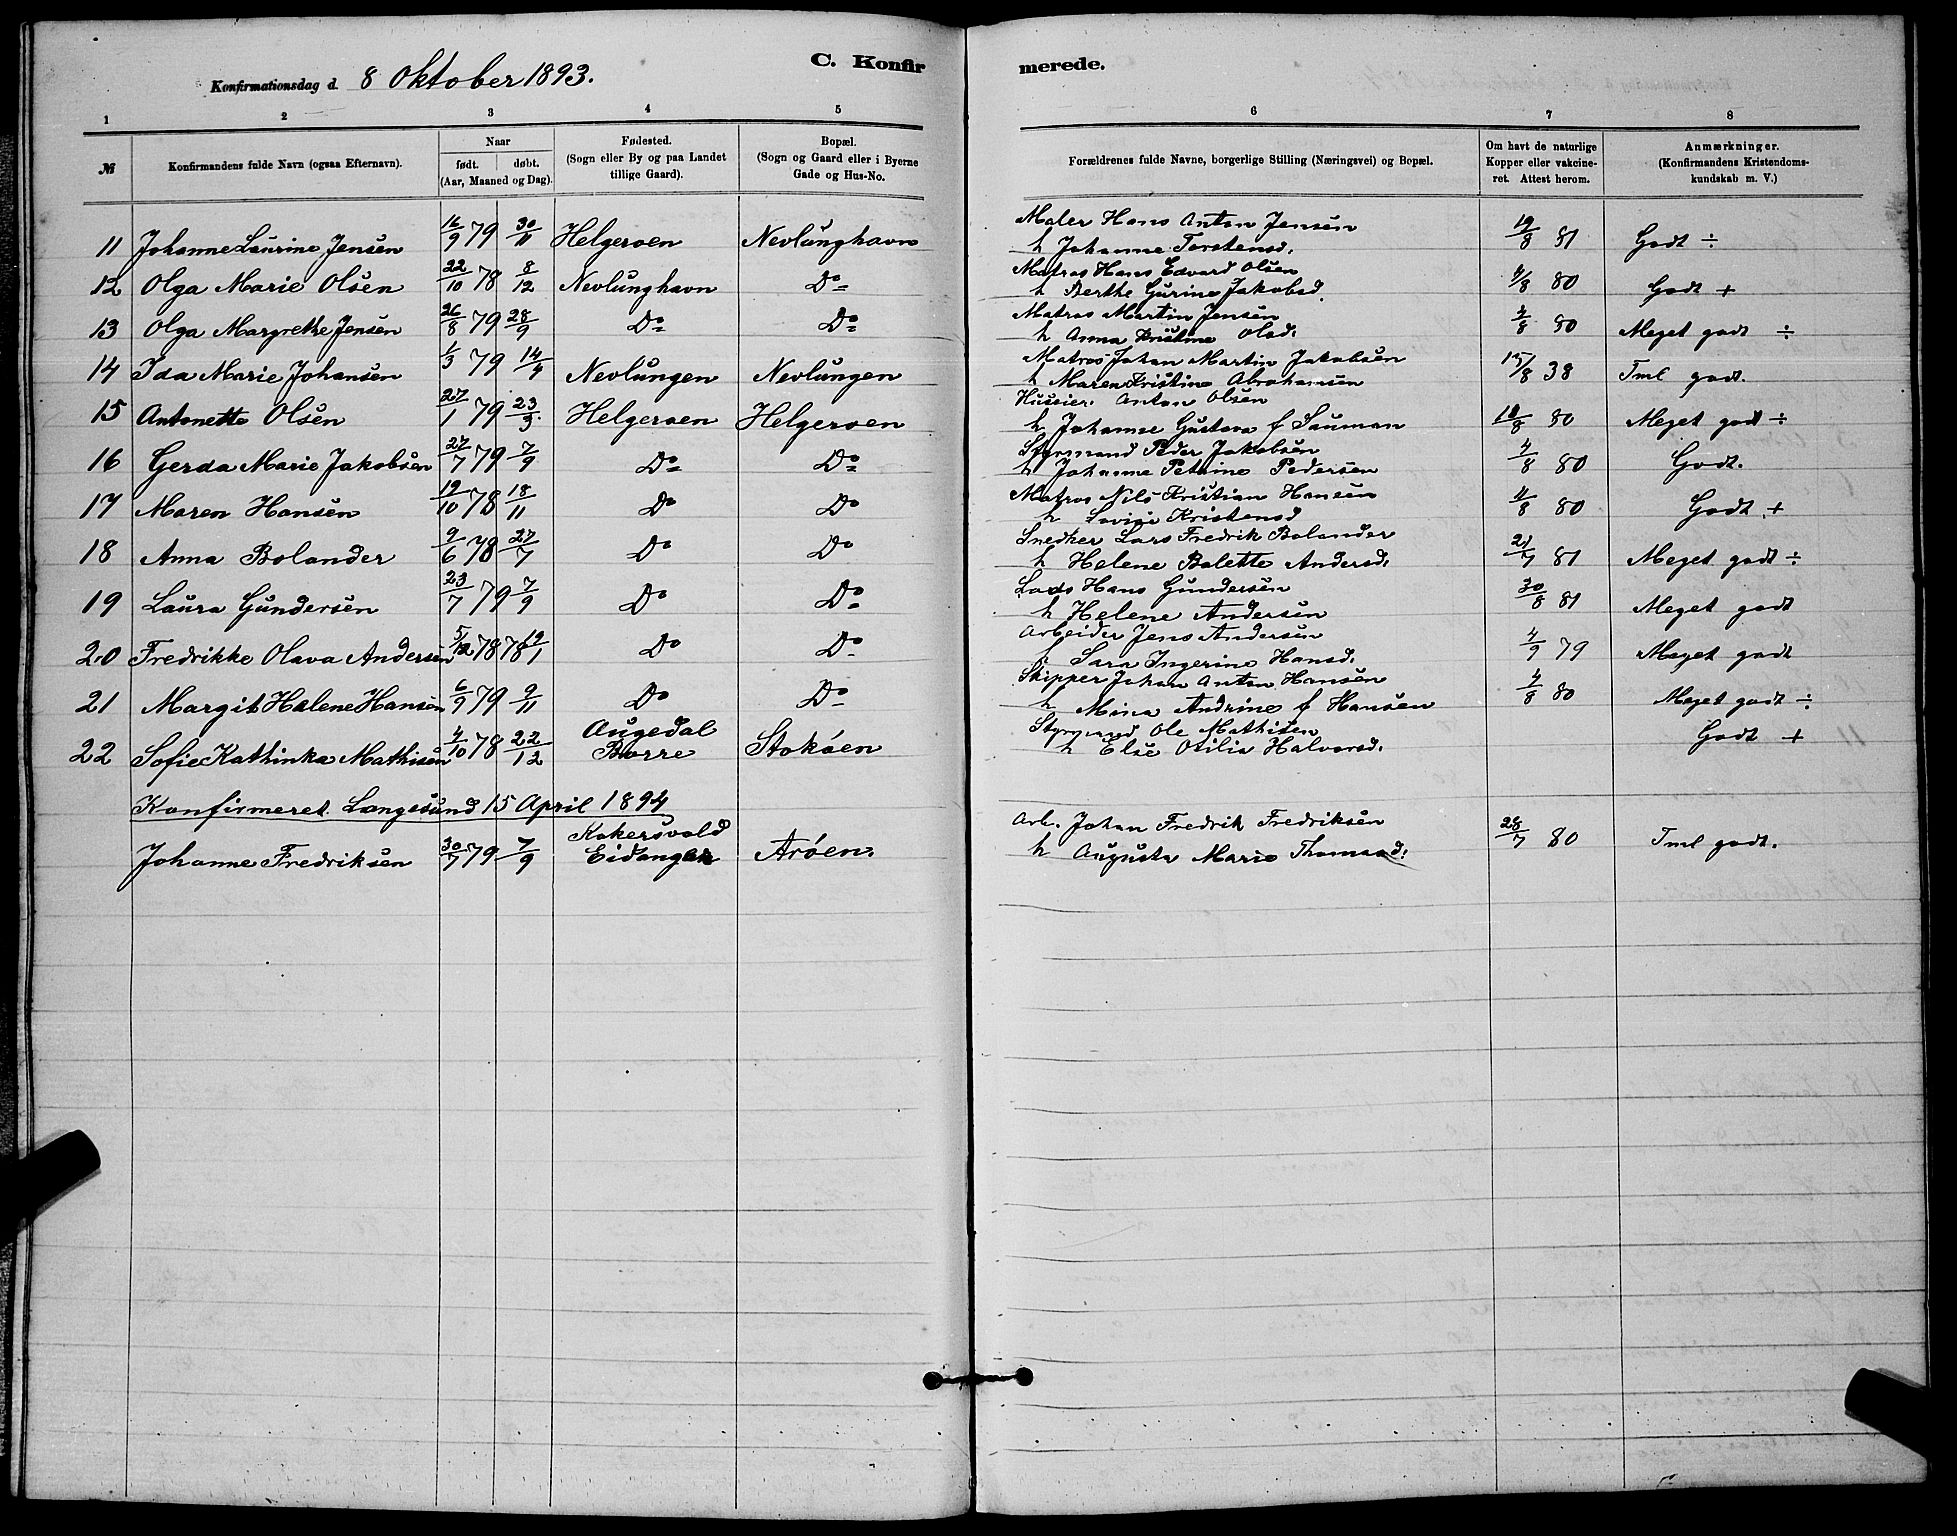 C. Konfirmerede.
Konfirmationsdag d. 8 Oktober 1893.
1 2 3 4 5 6 7 8
№ Konfirmandens fulde Navn (ogsaa Efternavn). Naar født. døbt. (Aar, Maaned og Dag). Fødested. (Sogn eller By og paa Landet tillige Gaard). Bopæl. (Sogn og Gaard eller i Byerne Gade og Hus-No. Forældrenes fulde Navne, borgerlige Stilling (Næringsvei) og Bopæl. Om havt de naturlige Kopper eller vakcineret. Attest herom. Anmærkninger. (Konfirmandens Kristendomskundskab m. V.)
11 Johanne Laurine Jensen 16/9 79 30/11 Helgeroen Nevlunghavn Maler Hans Anton Jensen 19/8 81 Godt ÷
h Johanne Torstensd.
12 Olga Marie Olsen 22/10 78 8/12 Nevlunghavn Do Matros Hans Edvard Olsen 4/8 80 Godt +
h Berthe Gurine Jakobsd.
13 Olga Margrethe Jensen 26/8 79 28/9 Do Do Matros Martin Jensen 4/8 80 Meget godt ÷
h Anna Kristine Olsd.
14 Ida Marie Johansen 1/3 79 14/4 Nevlungen Nevlungen Matros Johan Martin Jakobsen 15/8 38 Tml godt.
h Maren Kristine Abrahamsen
15 Antonette Olsen 27/1 79 23/3 Helgeroen Helgeroen Huseier Anton Olsen 18/8 80 Meget godt ÷
h Johanne Gustava f Sauman
16 Gerda Marie Jakobsen 27/7 79 7/9 Do Do Styrmand Peder Jakobsen 4/8 80 Godt.
h Johanne Petrine Pedersen
17 Maren Hansen 19/10 78 18/11 Do Do Matros Nils Kristian Hansen 4/8 80 Godt +
h Lovise Kristensd
18 Anna Bolander 9/6 78 27/7 Do Do Snedker Lars Fredrik Bolander 21/7 81 Meget godt ÷
h Helene Bolette Andersd.
19 Laura Gundersen 23/7 79 7/9 Do Do Lods Hans Gundersen 30/8 81 Meget godt
h Helene Andersen
20 Fredrikke Olava Andersen 5/12 78 78 19/1 Do Do Arbeider Jens Andersen 4/9 79 Meget godt
h Sara Ingerine Hansd.
21 Margit Helene Hansen 6/9 79 9/11 Do Do Skipper Johan Anton Hansen 4/8 80 Meget godt ÷
h Mina Andrine f Hansen
22 Sofie Kathinka Mathisen 4/10 78 22/12 Augedal Borre Stokøen Styrmand Ole Mathisen Godt +
h Else Otilie Halvorsd.
Konfirmeret Langesund 15 April 1894
Johanne Fredriksen 30/7 79 7/9 Kokersvold Eidanger Arøen. Arb. Johan Fredrik Fredriksen 28/7 80 Tml godt.
h Augusta Marie Thomasd.